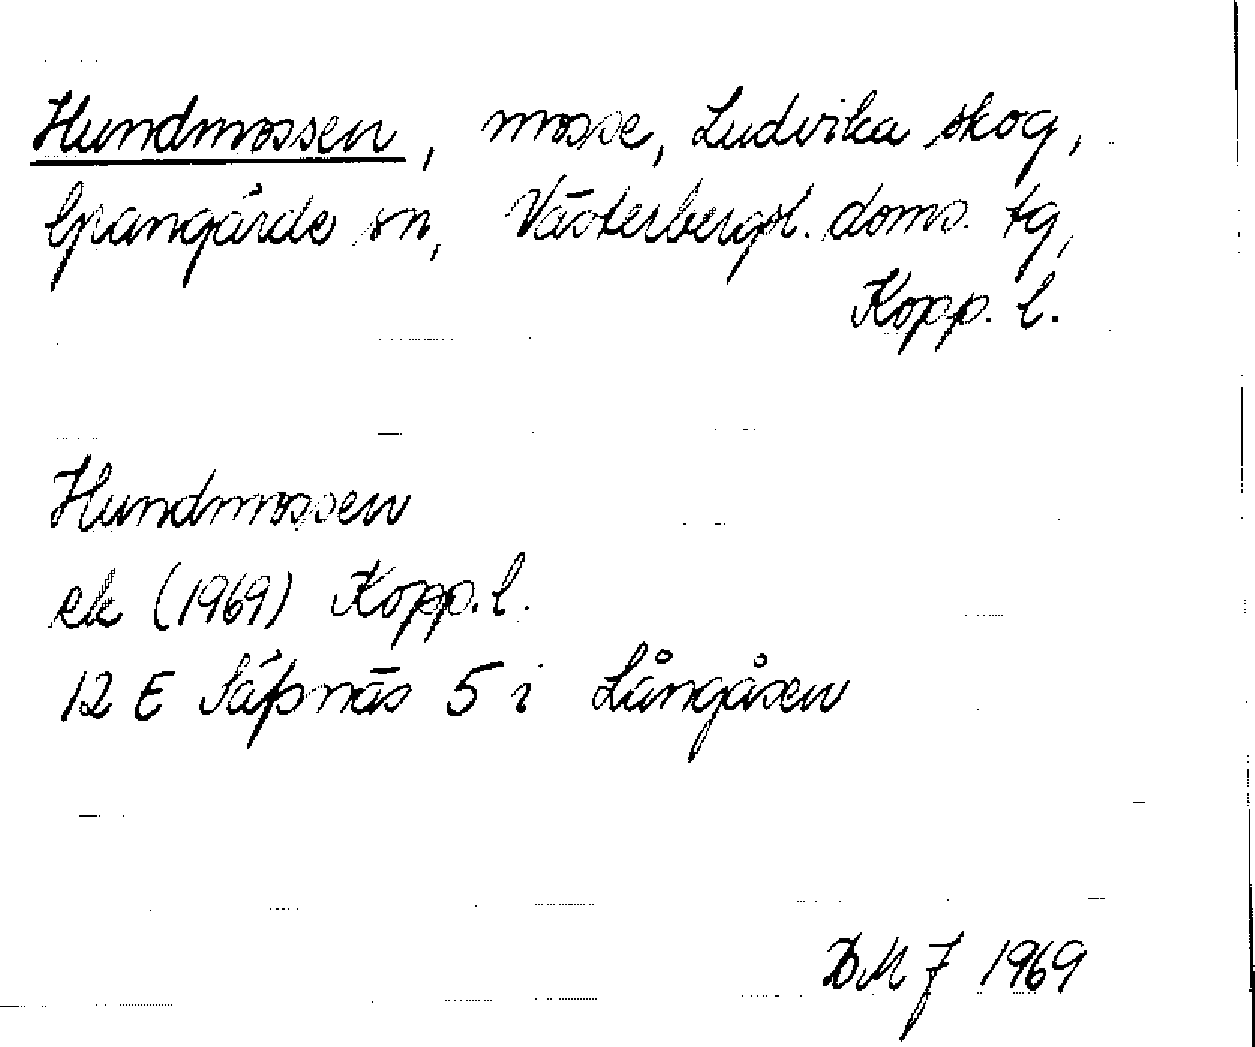 Hundmossen, mosse, Ludvika skog,
Grangärde sn, Västerbergsl. doms. tg,
Kopp. l.
Hundmossen
ek (1969) Kopp. l.
12 E Säfsnäs 5 i Långåsen
DMJ 1969